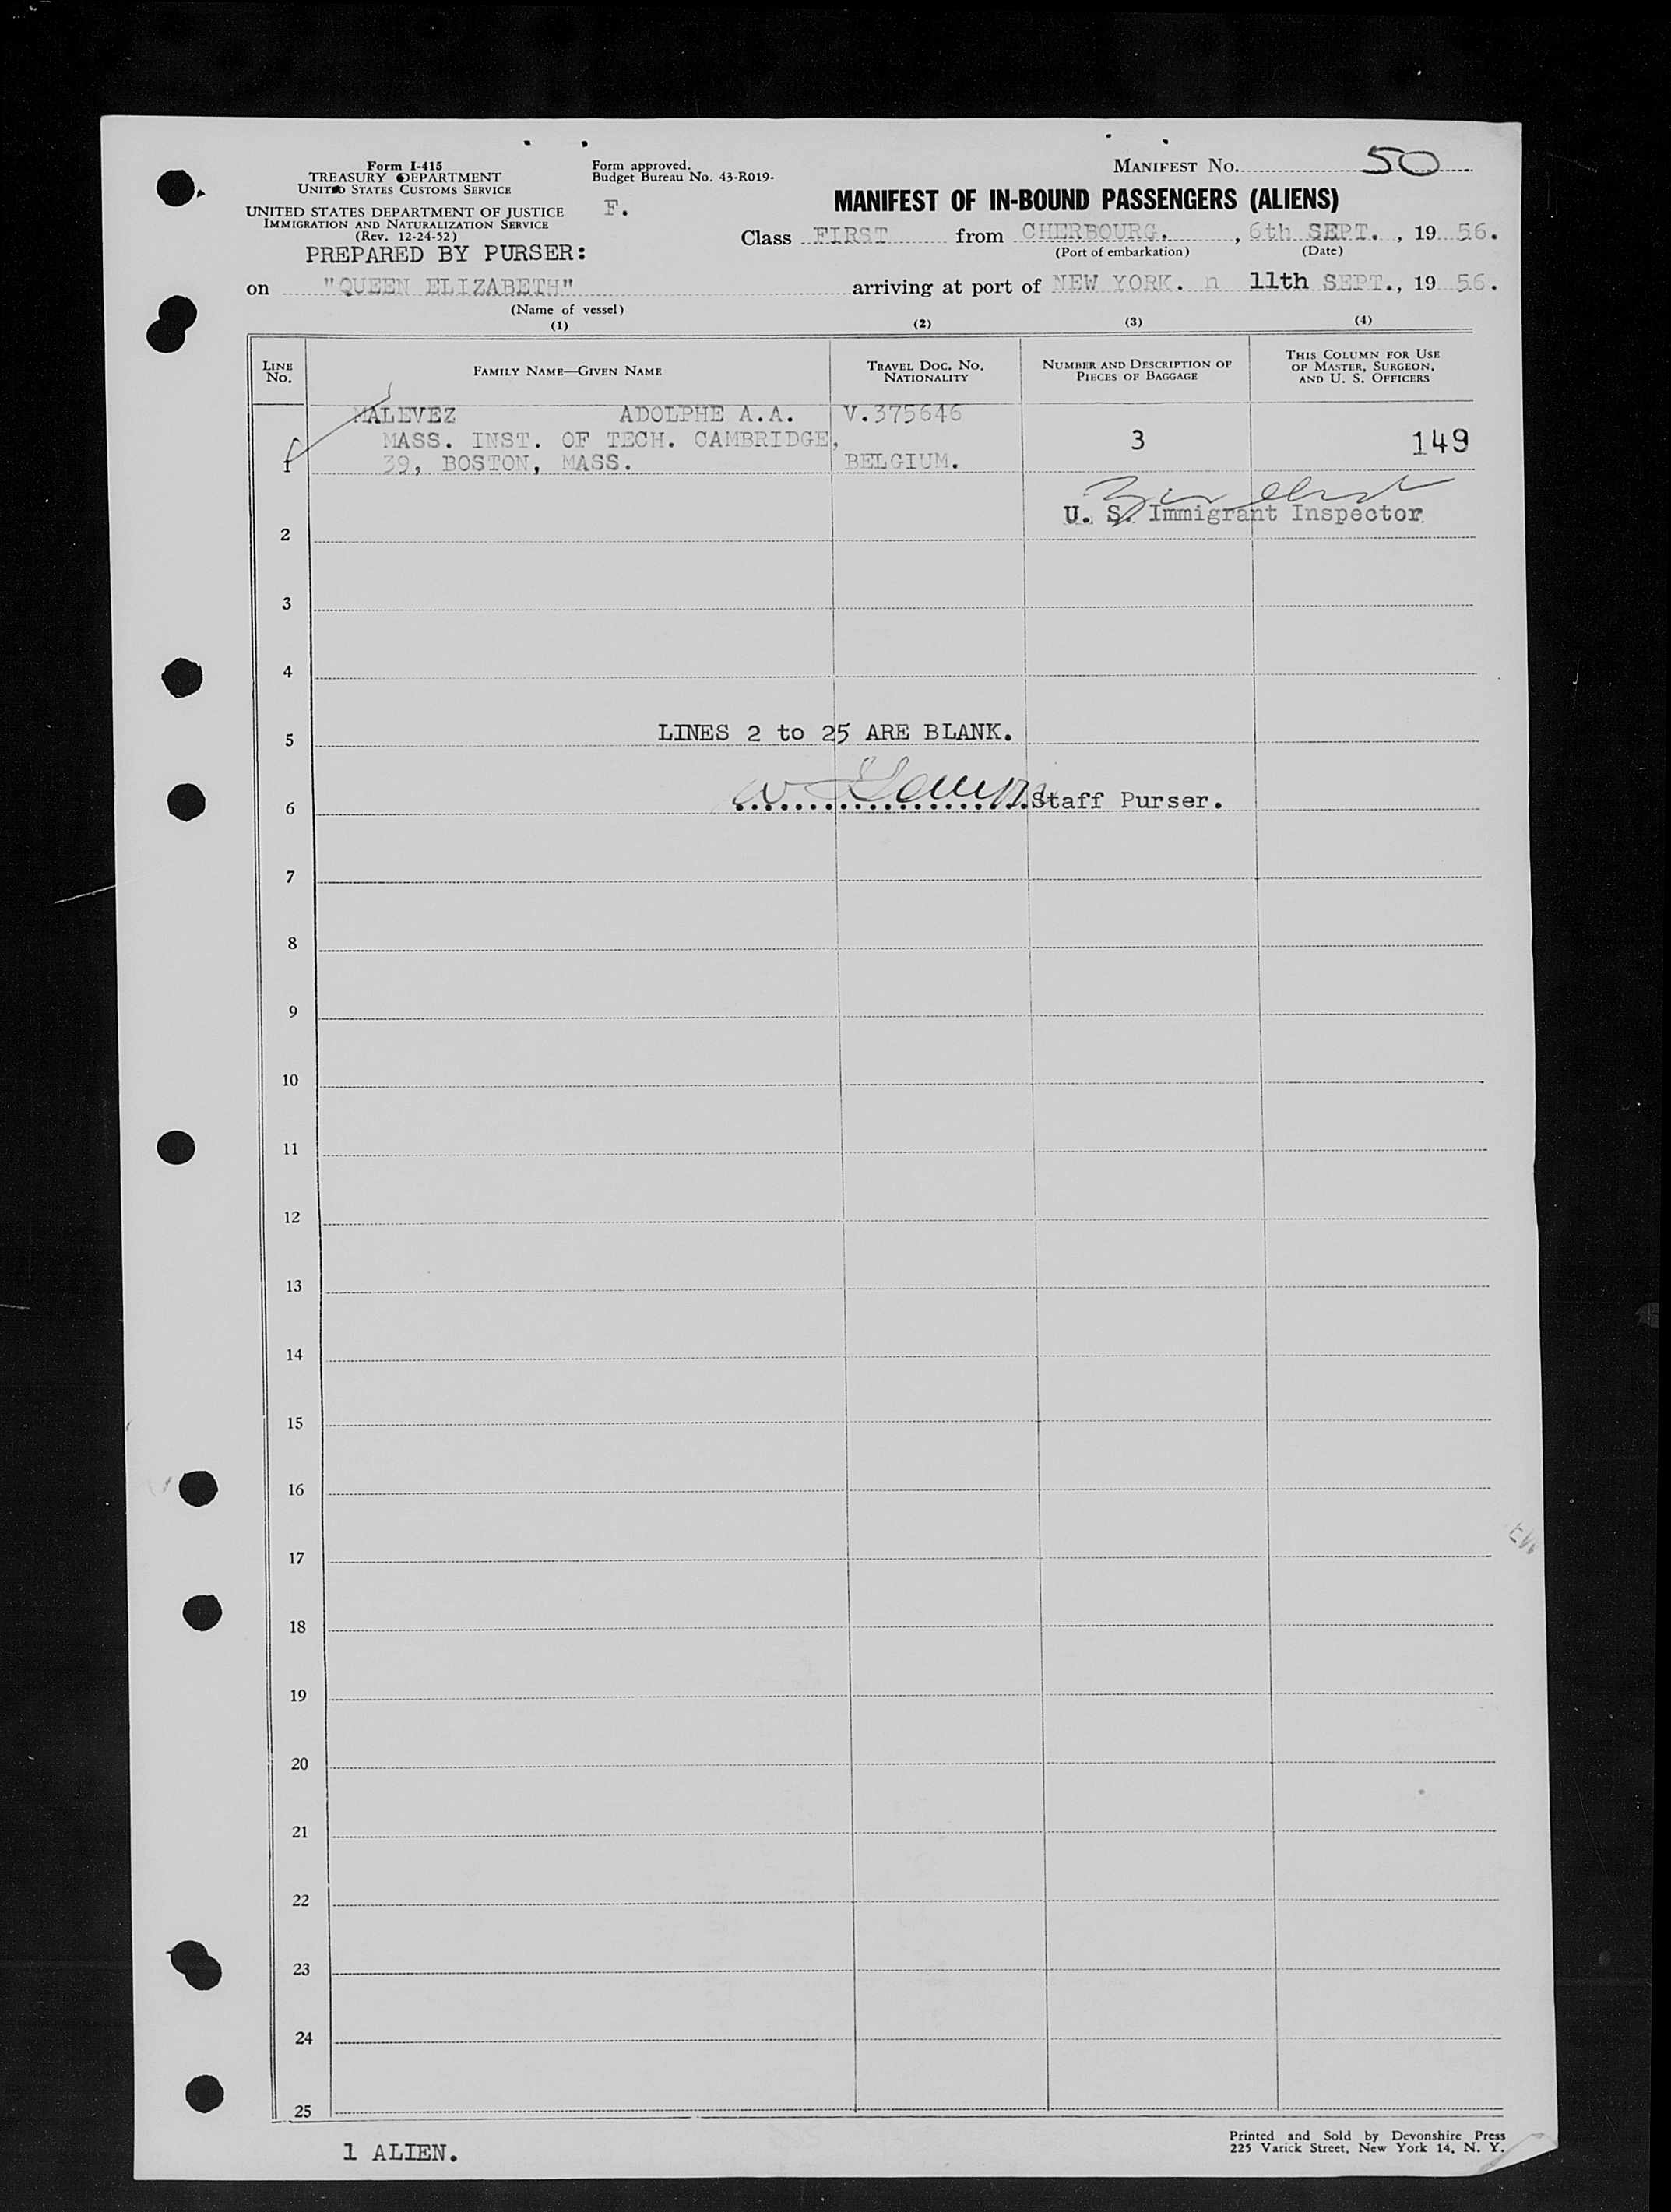 Form I-415
TREASURY DEPARTMENT
UNITED STATES CUSTOMS SERVICE
UNITED STATES DEPARTMENT OF JUSTICE
IMMIGRATION AND NATURALIZATION SERVICE
(Rev. 12-24-52)
PREPARED BY PURSER:
Form approved.
Budget Bureau No. 43-R019-
F.
MANIFEST No. 50
MANIFEST OF IN-BOUND PASSENGERS (ALIENS)
Class FIRST from CHERBOURG. , 6th SEPT. , 19 56.
(Port of embarkation) (Date)
on "QUEEN ELIZABETH" arriving at port of NEW YORK. n 11th SEPT., 19 56.
(Name of vessel)
(1) (2) (3) (4)
LINE No. FAMILY NAME—GIVEN NAME TRAVEL DOC. NO. NATIONALITY NUMBER AND DESCRIPTION OF PIECES OF BAGGAGE THIS COLUMN FOR USE OF MASTER, SURGEON, AND U. S. OFFICERS
MALEVEZ ADOLPHE A.A. V.375646
MASS. INST. OF TECH. CAMBRIDGE, 3 149
1 39, BOSTON, MASS. BELGIUM.
U. S. Immigrant Inspector
2
3
4
LINES 2 to 25 ARE BLANK.
5
Staff Purser.
6
7
8
9
10
11
12
13
14
15
16
17
18
19
20
21
22
23
24
25
1 ALIEN.
Printed and Sold by Devonshire Press
225 Varick Street, New York 14, N. Y.